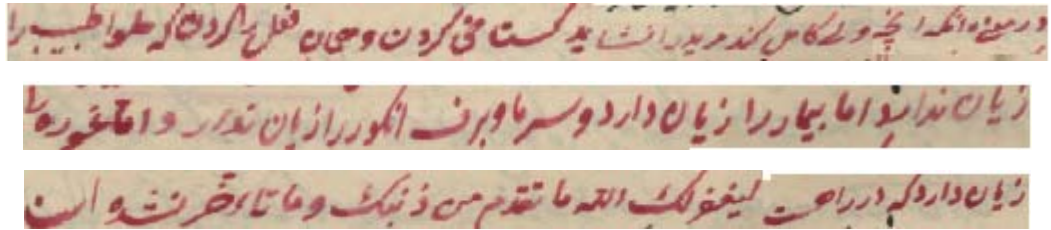 در معنی آنکه آنچه ولی کامل کند مرید را نشاید گستاخی کردن و همان فعل کردن که حلوا طبیب را
زیان ندارد اما بیمار را زیان دارد و سرما و برف انگور را زیان ندارد و اما غوره را
زیان دارد که در راهست لیغفرلک الله ما تقدم من ذنبک و ما تاخر نشده است